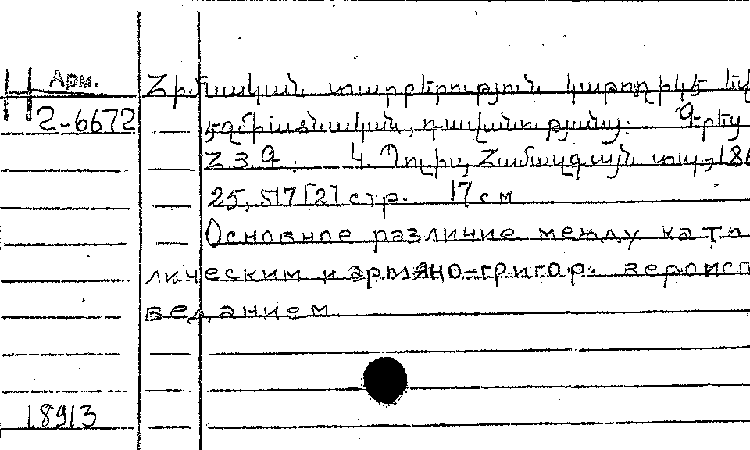 Арм.
Н
2-6672
Հիմնական տարբերություն կաթողիկէ եվ
էջմիածնական դավանությանց. Գրեց
Հ. Յ. Գ. Կ. Պոլիս, Համազգային տպ., 186
25, 517 [2] стр. 17 см
Основное различие между като
лическим и армяно-григор. вероисп
веданием.
18913